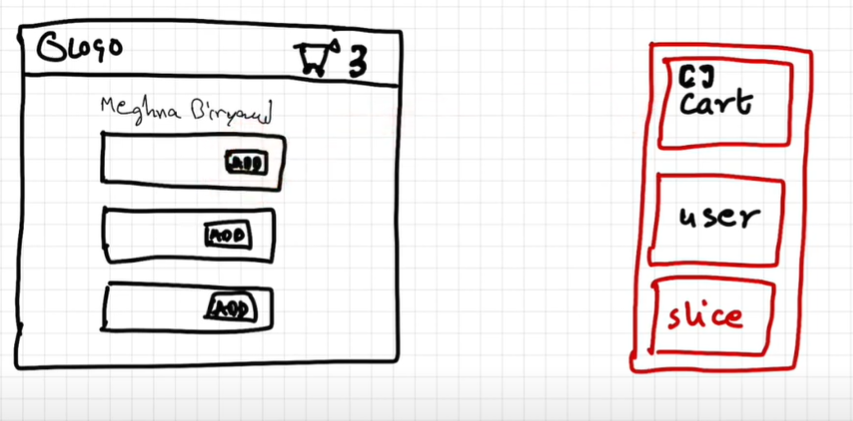 Logo
3
Meghna Biryani
ADD
ADD
ADD
[]
Cart
user
slice